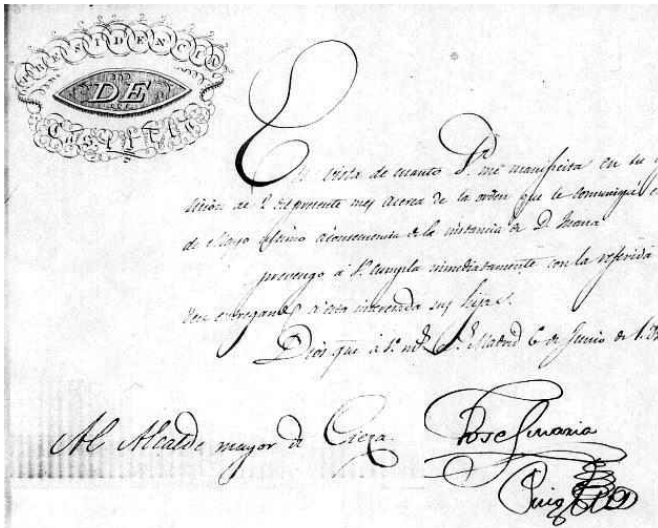 PRESIDENCIA
DE
CASTILLA
En vista de cuanto V. me manifiesta en su
de 2 del presente mes acerca de la orden que le comuniqué
de Mayo último a consecuencia de la instancia de D. Maria
prevengo á V. cumpla inmediatamente con la referida
entregando a esta interesada sus hijas.
Dios gue. á V. ms. as. Madrid 6 de Junio de 18
Al Alcalde mayor de Cieza.
Jose Maria
Puig